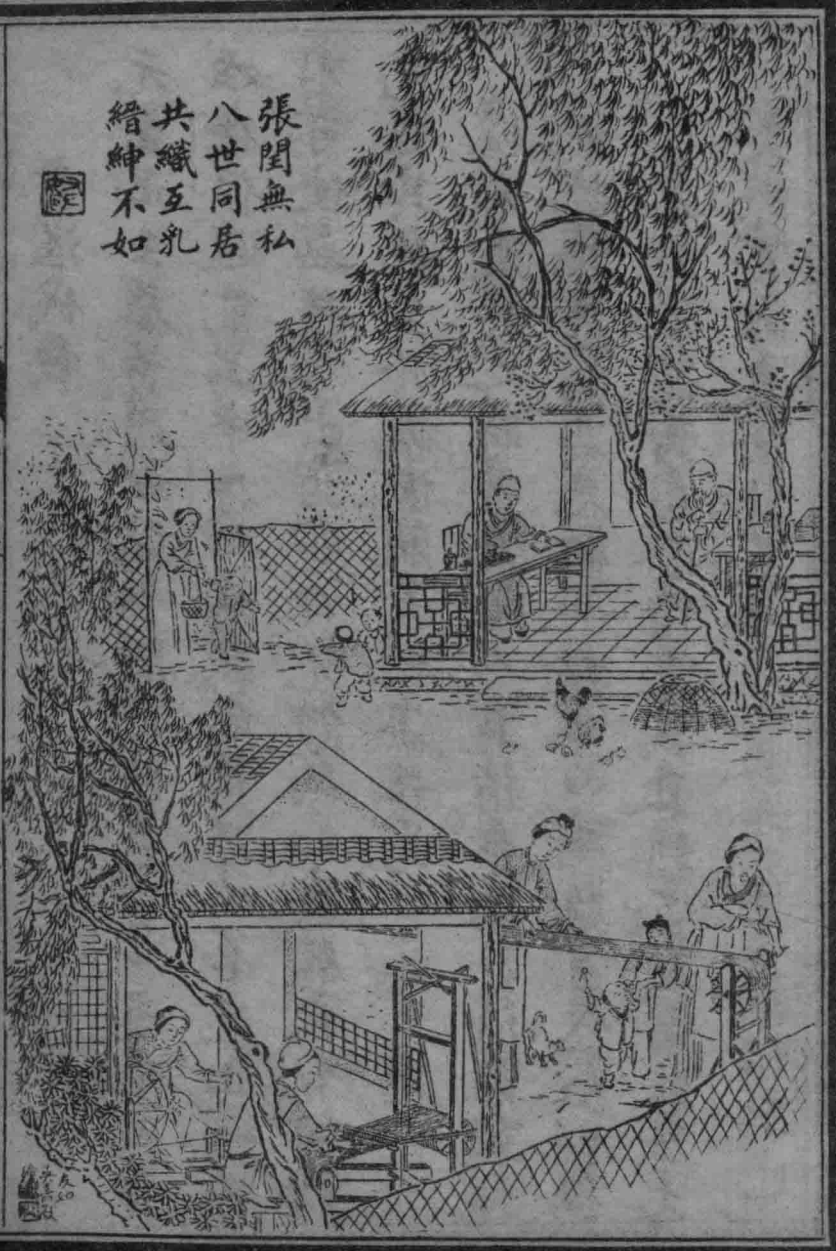 張閏無私
八世同居
共織互乳
縉紳不如